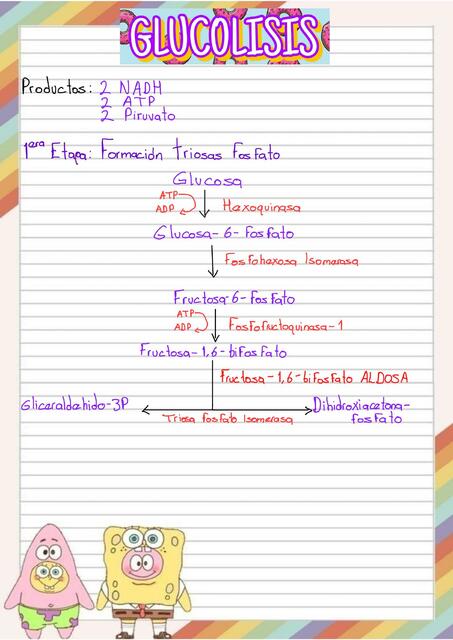 GLUCOLISIS
Productos: 2 NADH
2 ATP
2 Piruvato
1era Etapa: Formación triosas Fosfato
Glucosa
ATP
ADP
Hexoquinasa
Glucosa-6-Fosfato
Fosfohexosa Isomerasa
Fructosa-6-Fosfato
ATP
ADP
Fosfofructoquinasa-1
Fructosa-1,6-bifosfato
Fructosa-1,6-bifosfato ALDOSA
Gliceraldehido-3P
Triosa fosfato Isomerasa
Dihidroxiacetona-
fosfato